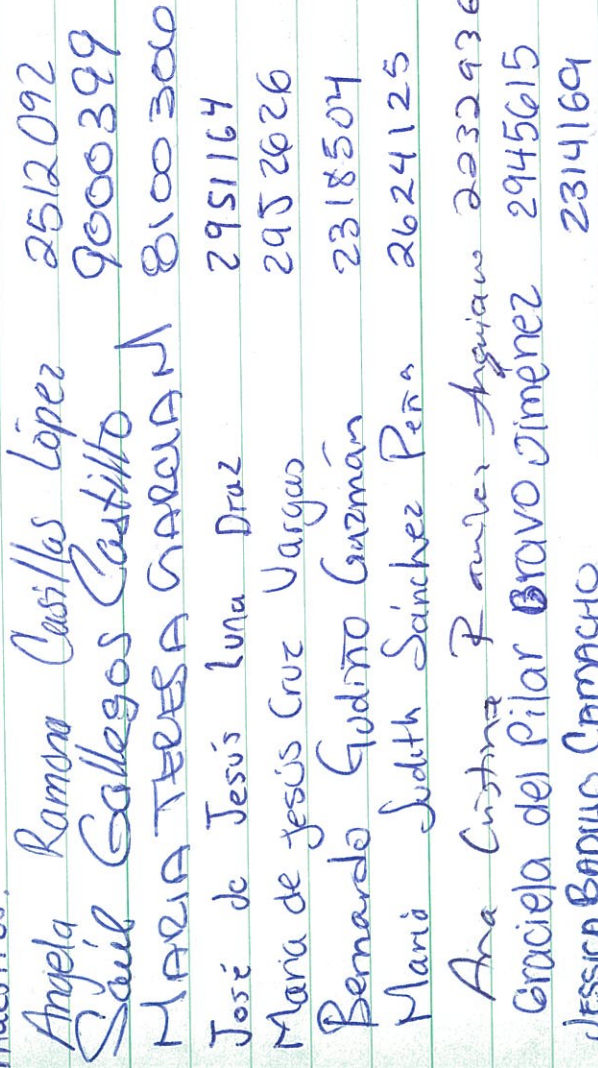 maestros:
Angela Ramona Casillas López 2512092
Saúl Gallegos Castillo 9000399
MARIA TERESA GARCIA N 8100306
José de Jesús Luna Draz 2951164
Maria de jesús Cruz Vargas 2952626
Bernardo Gudiño Guzmán 2318504
Mario Judith Sánchez Peña 2624125
Ana Cristina Ramirez Anguiano 2232936
Graciela del Pilar Bravo Jiménez 2945615
JESSICA BADILLO CAMACHO 2314169